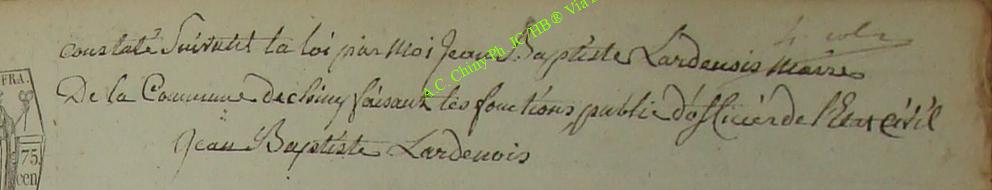 constaté Suivant la loi par moi Jean Baptiste Lardenois maire
De la Commune de chiny faisant les fonctions public d'officier de l'Etat Civil
Jean Baptiste Lardenois
A C Chiny Ph JC/HB® Via
FRA.
75.
cen